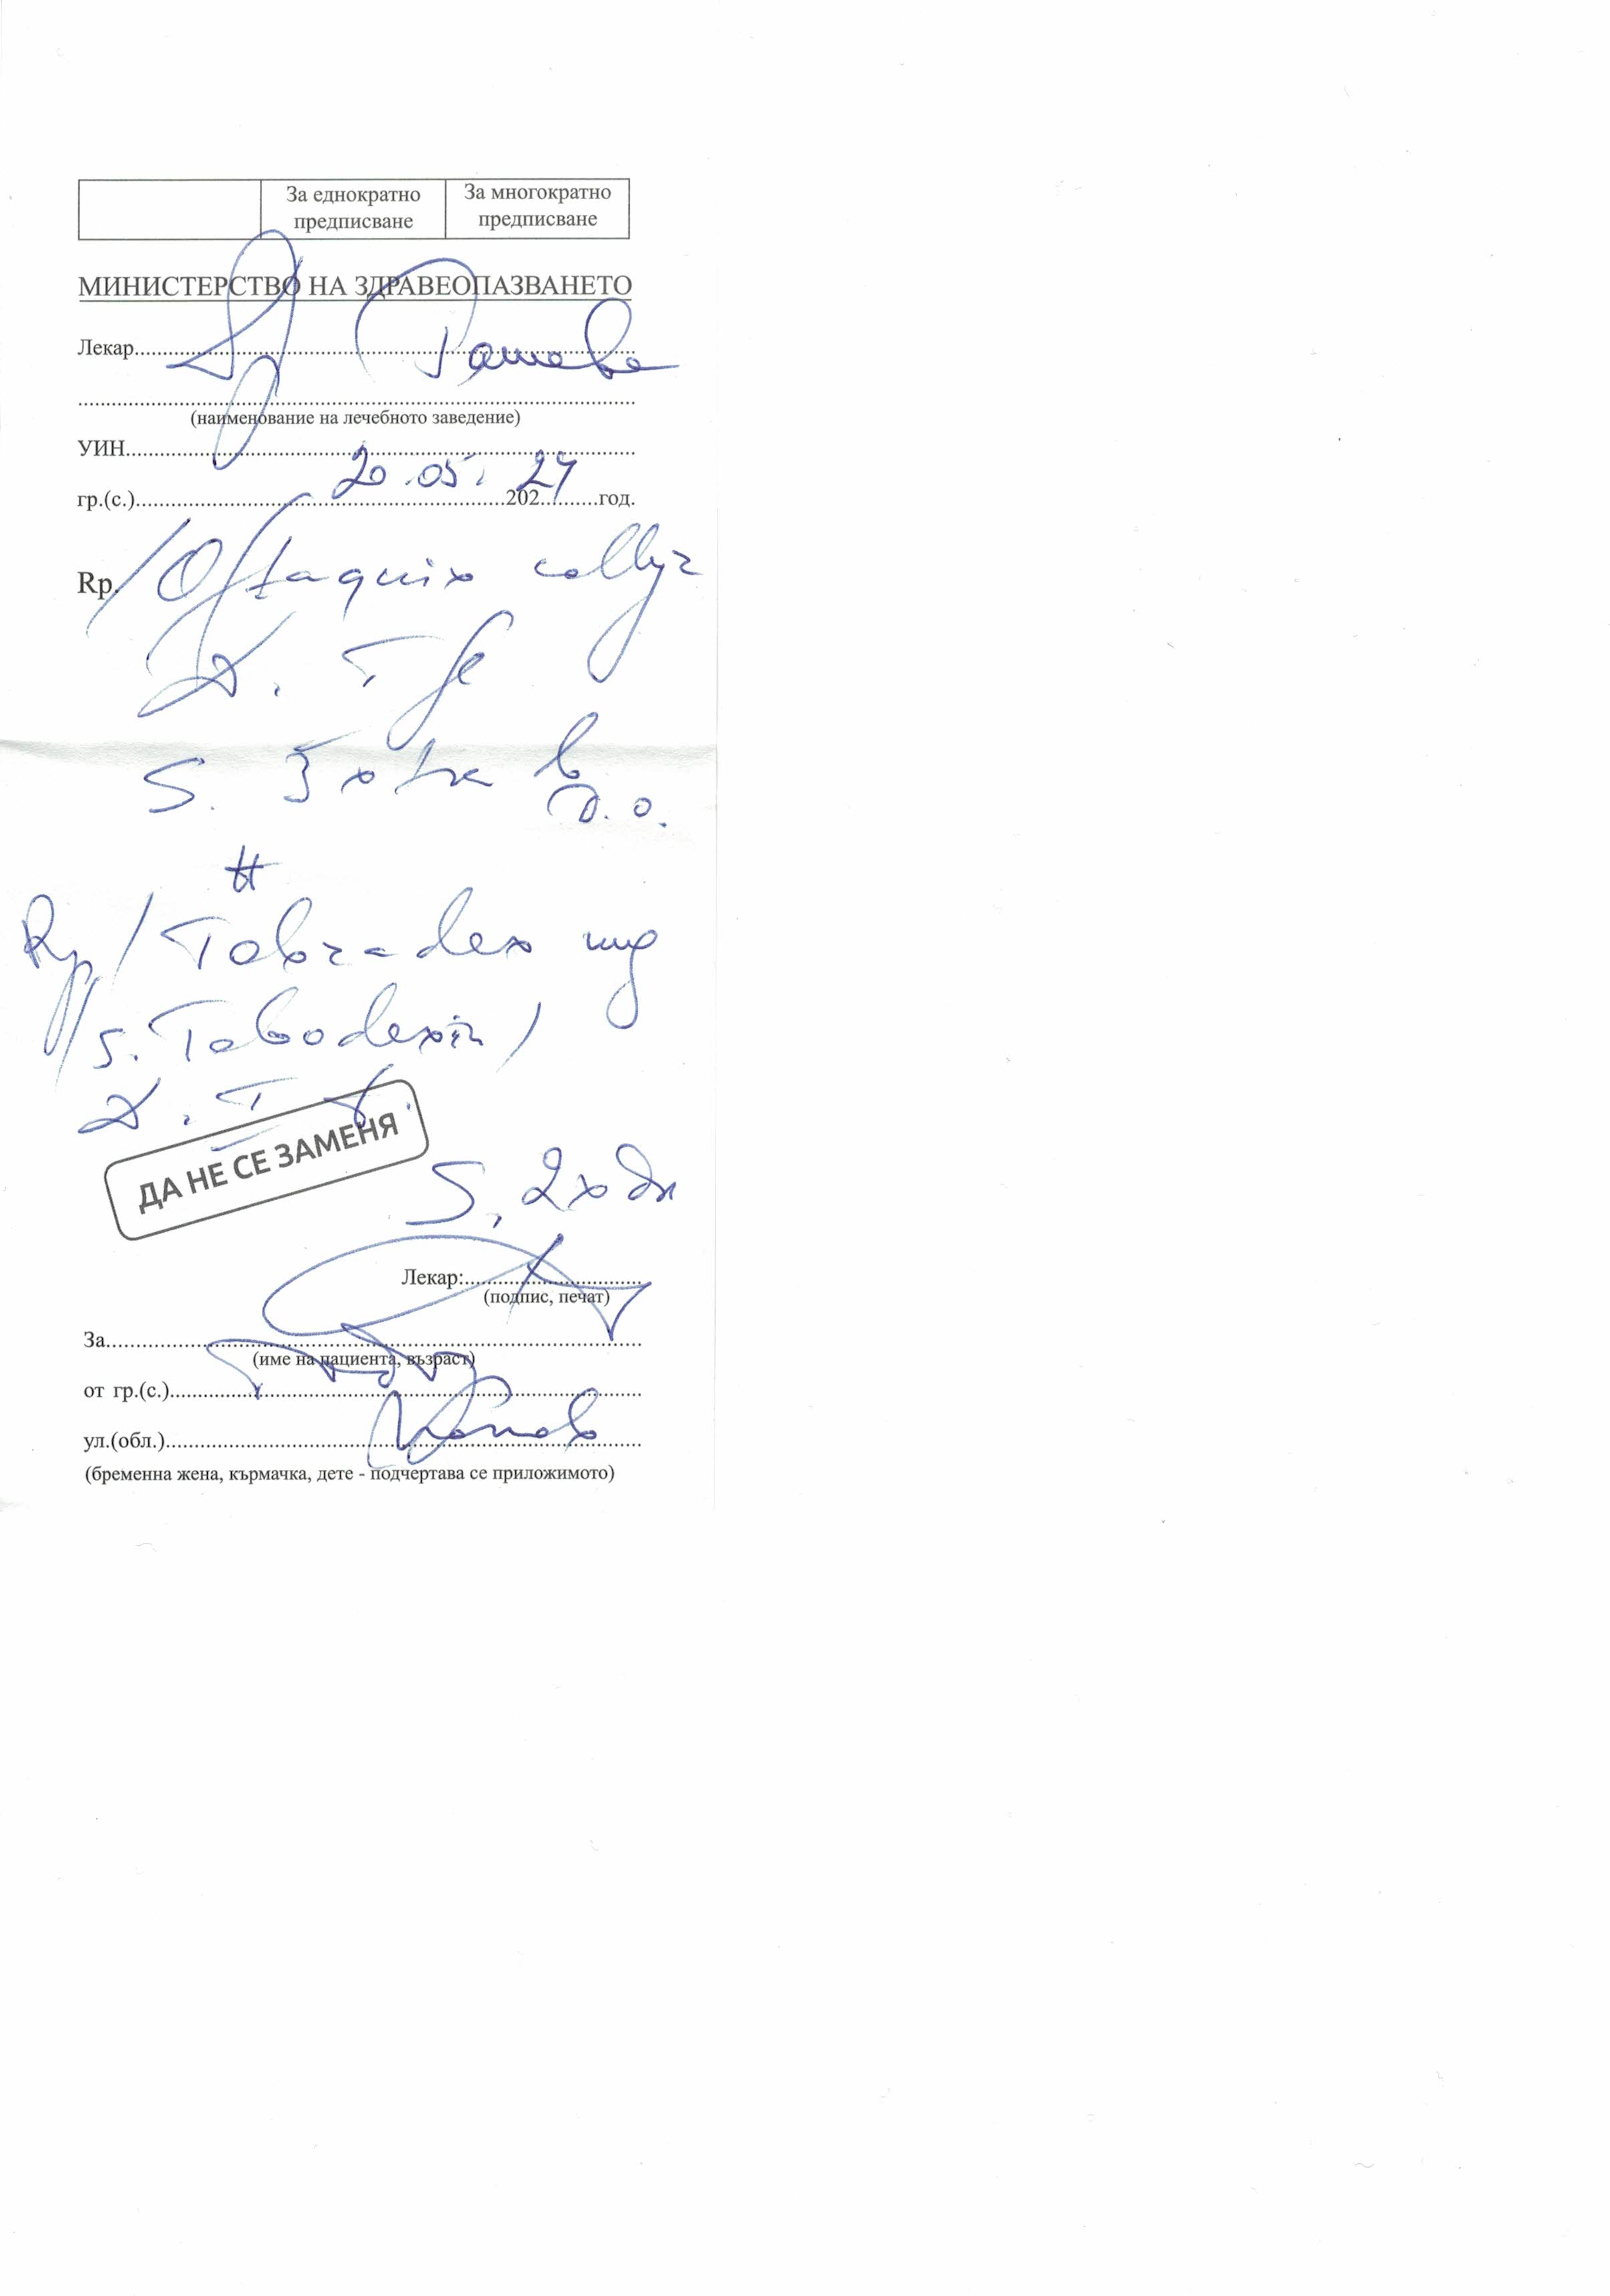 За еднократно предписване
За многократно предписване
МИНИСТЕРСТВО НА ЗДРАВЕОПАЗВАНЕТО
Лекар
(наименование на лечебното заведение)
УИН
20.05.
гр.(с.) 202 24 год.
Rp. / Oftaquix collyr
D.
S. 3 x 1к в
д.о.
#
Rp / Tobradex ung
/ s. Tobodexin /
D.
ДА НЕ СЕ ЗАМЕНЯ
S. 2x дн
Лекар:
(подпис, печат)
За
(име на пациента, възраст)
от гр.(с.)
ул.(обл.)
(бременна жена, кърмачка, дете - подчертава се приложимото)